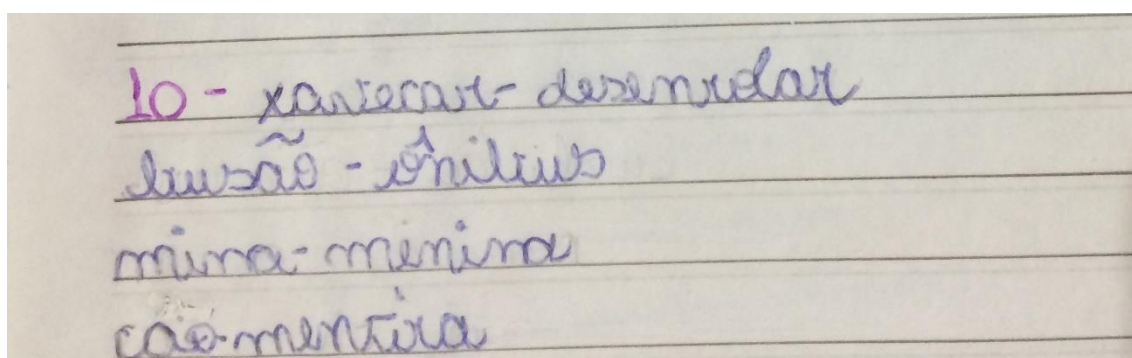 10 - xavecar - desenrolar
busão - ônibus
mina - menina
caô - mentira